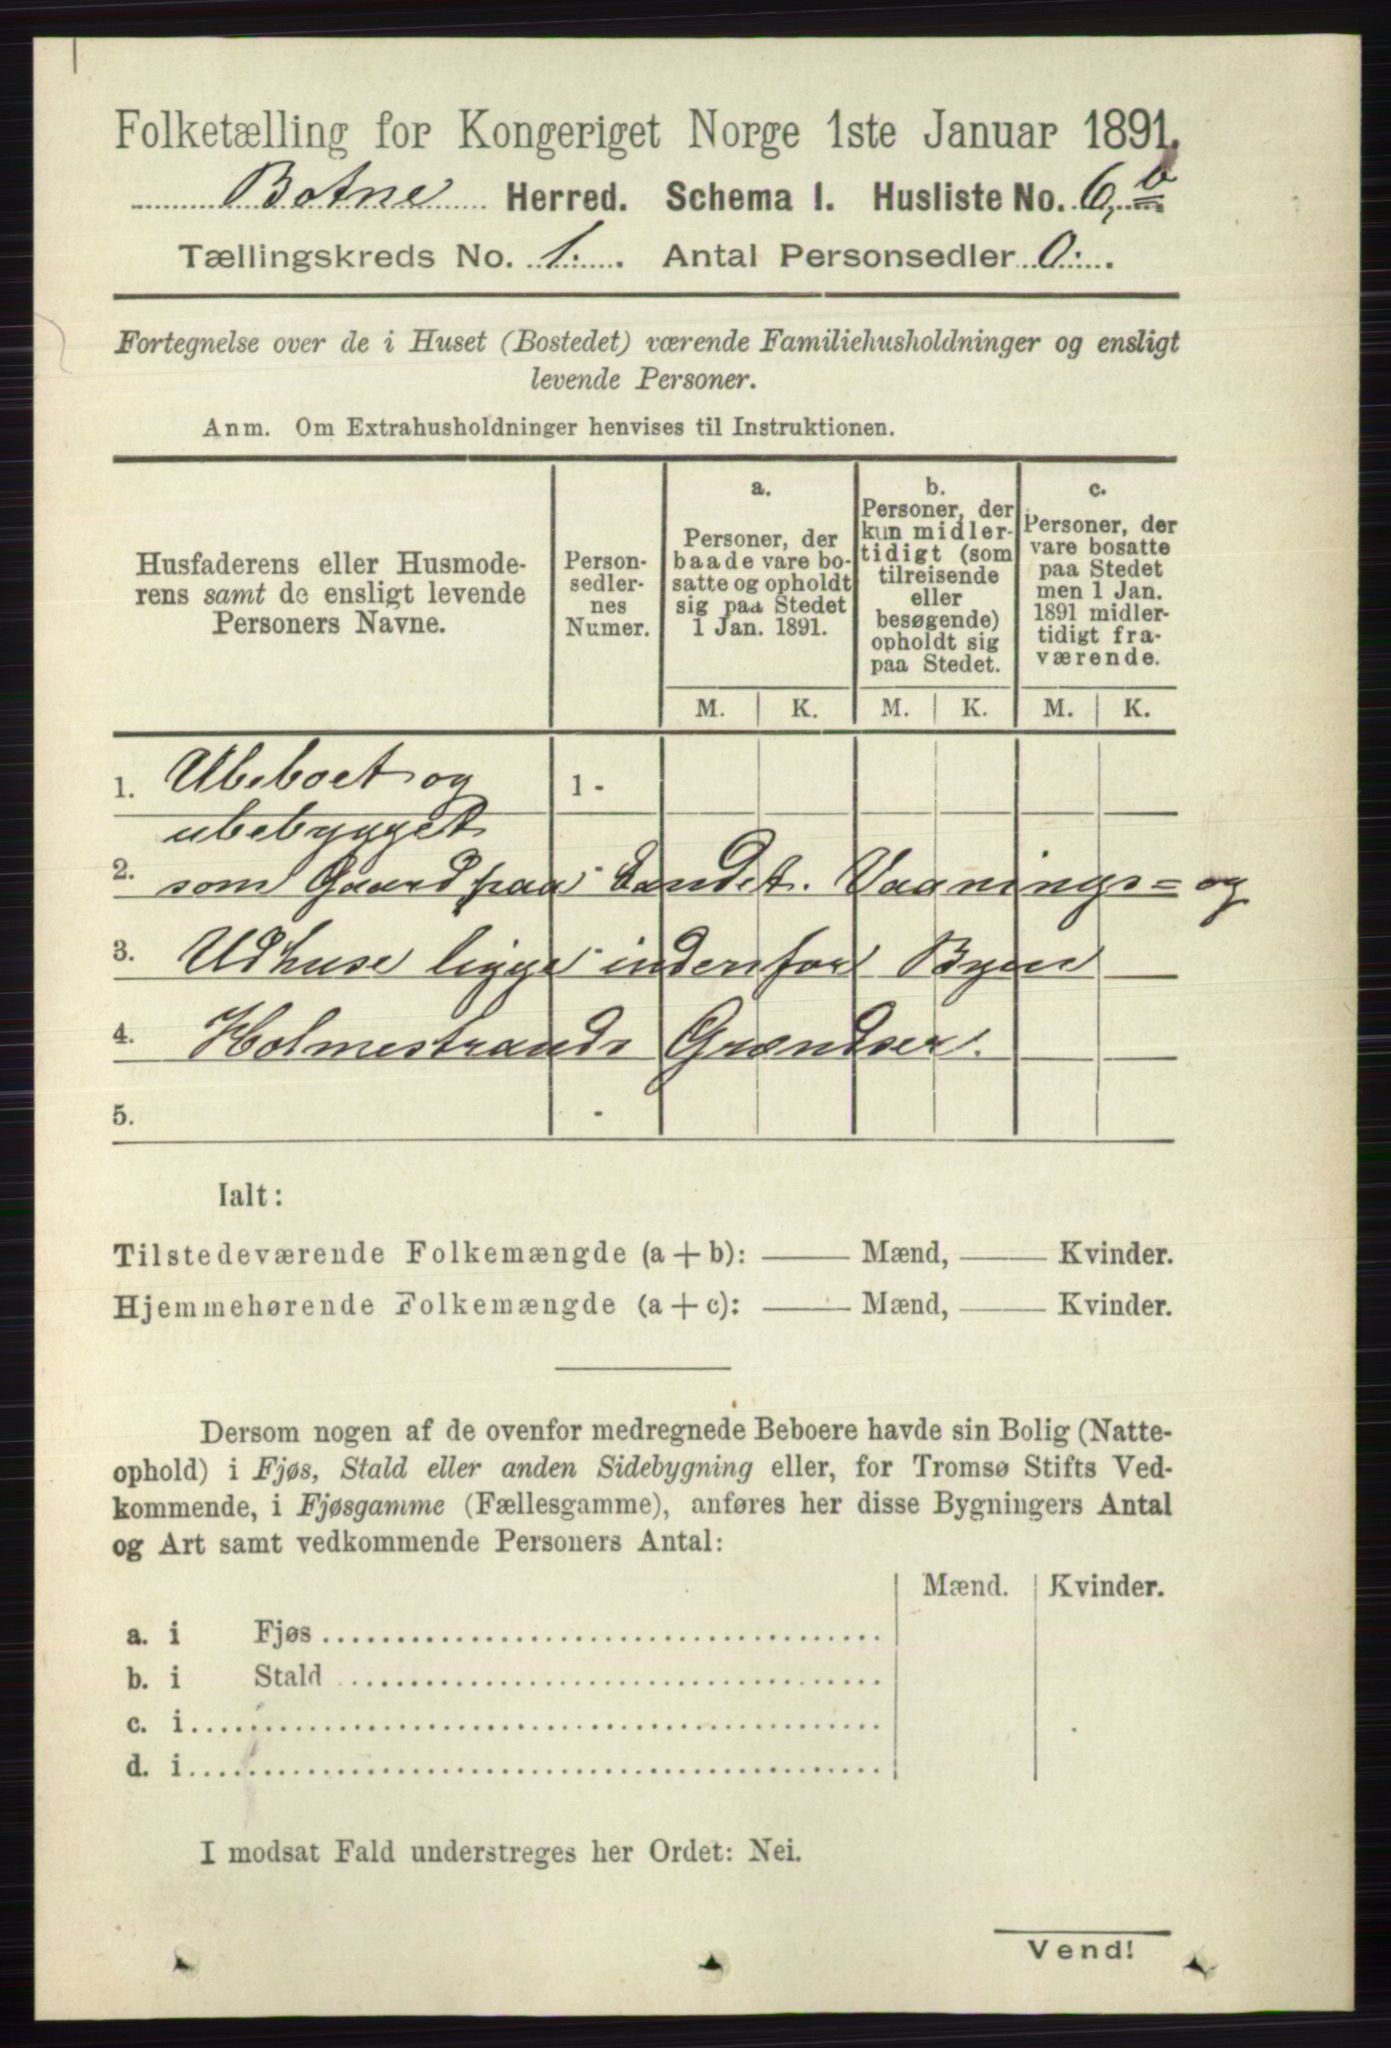 Folketælling for Kongeriget Norge 1ste Januar 1891.
Botne Herred. Schema I. Husliste No. 6, b
Tællingskreds No. 1. Antal Personsedler 0.
Fortegnelse over de i Huset (Bostedet) værende Familiehusholdninger og ensligt
levende Personer.
Anm. Om Extrahusholdninger henvises til Instruktionen.
Husfaderens eller Husmode-
rens samt de ensligt levende
Personers Navne.
Person-
sedler-
nes
Numer.
a.
Personer, der
baade vare bo-
satte og opholdt
sig paa Stedet
1 Jan. 1891.
b.
Personer, der
kun midler-
tidigt (som
tilreisende
eller
besøgende)
opholdt sig
paa Stedet.
c.
Personer, der
vare bosatte
paa Stedet
men 1 Jan.
1891 midler-
tidigt fra-
værende.
M. K. M. K. M. K.
1. Ubeboet og 1 -
ubebygget
2. som Gaard paa Landet. Vaanings= og
3. Udhuse ligge indenfor Byen
4. Holmestrands Grændser.
5. -
Ialt:
Tilstedeværende Folkemængde (a + b): —— Mænd, —— Kvinder.
Hjemmehørende Folkemængde (a + c): —— Mænd, —— Kvinder.
Dersom nogen af de ovenfor medregnede Beboere havde sin Bolig (Natte-
ophold) i Fjøs, Stald eller anden Sidebygning eller, for Tromsø Stifts Ved-
kommende, i Fjøsgamme (Fællesgamme), anføres her disse Bygningers Antal
og Art samt vedkommende Personers Antal:
Mænd. Kvinder.
a. i Fjøs
b. i Stald
c. i
d. i
I modsat Fald understreges her Ordet: Nei.
Vend!